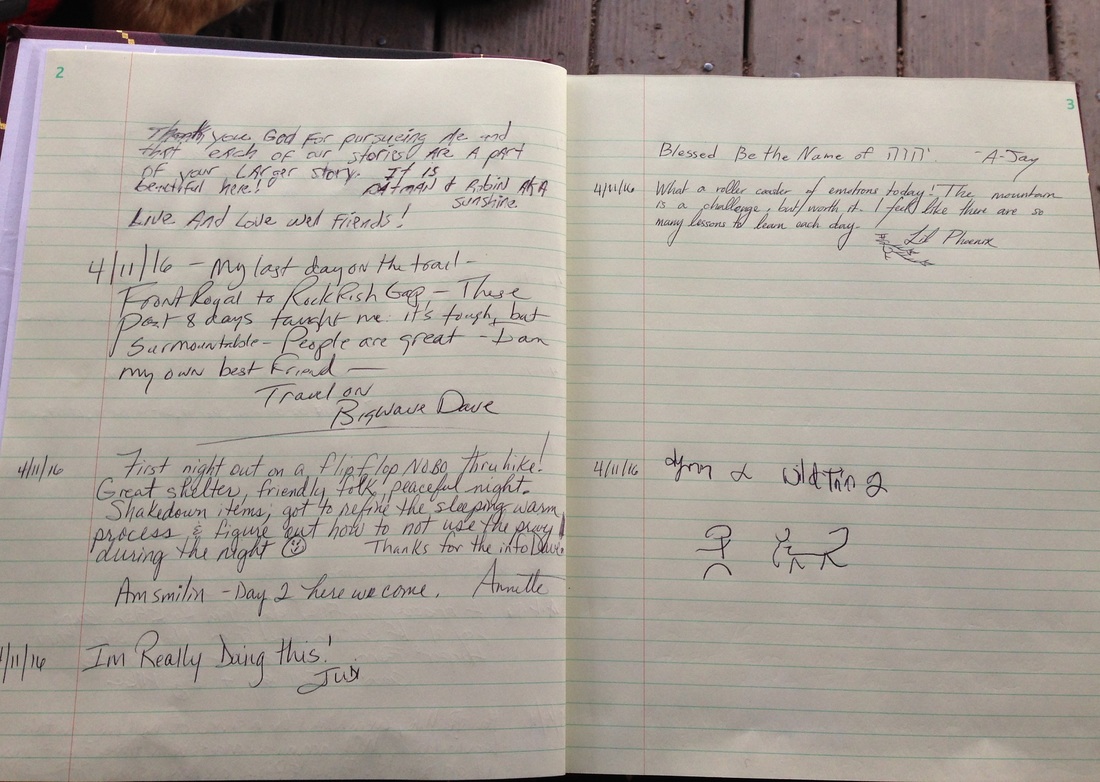 2
Thank you God For pursueing Me and
that each of our stories Are A part
of your LArger story. It is
beautiful here!
& Robin AKA
Sunshine
Live And Love well Friends!
4/11/16 - My last day on the trail -
Front Royal to RockFish Gap - These
past 8 days taught me: it's tough, but
Surmountable - People are great - I am
my own best Friend —
Travel on
BigWave Dave
4/11/16 First night out on a flip flop NOBO thru hike!
Great shelter, friendly folk, peaceful night.
Shakedown items; got to refine the sleeping warm
process & figure out how to not use the privy
during the night ☺ Thanks for the info Dave!
Am smilin - Day 2 here we come. Annette
4/11/16 Im Really Doing this!
3
Blessed Be the Name of יהוה. -A-Jay
4/11/16 What a roller coaster of emotions today! The mountain
is a challenge, but worth it. I feel like there are so
many lessons to learn each day. Lil Phoenix
4/11/16